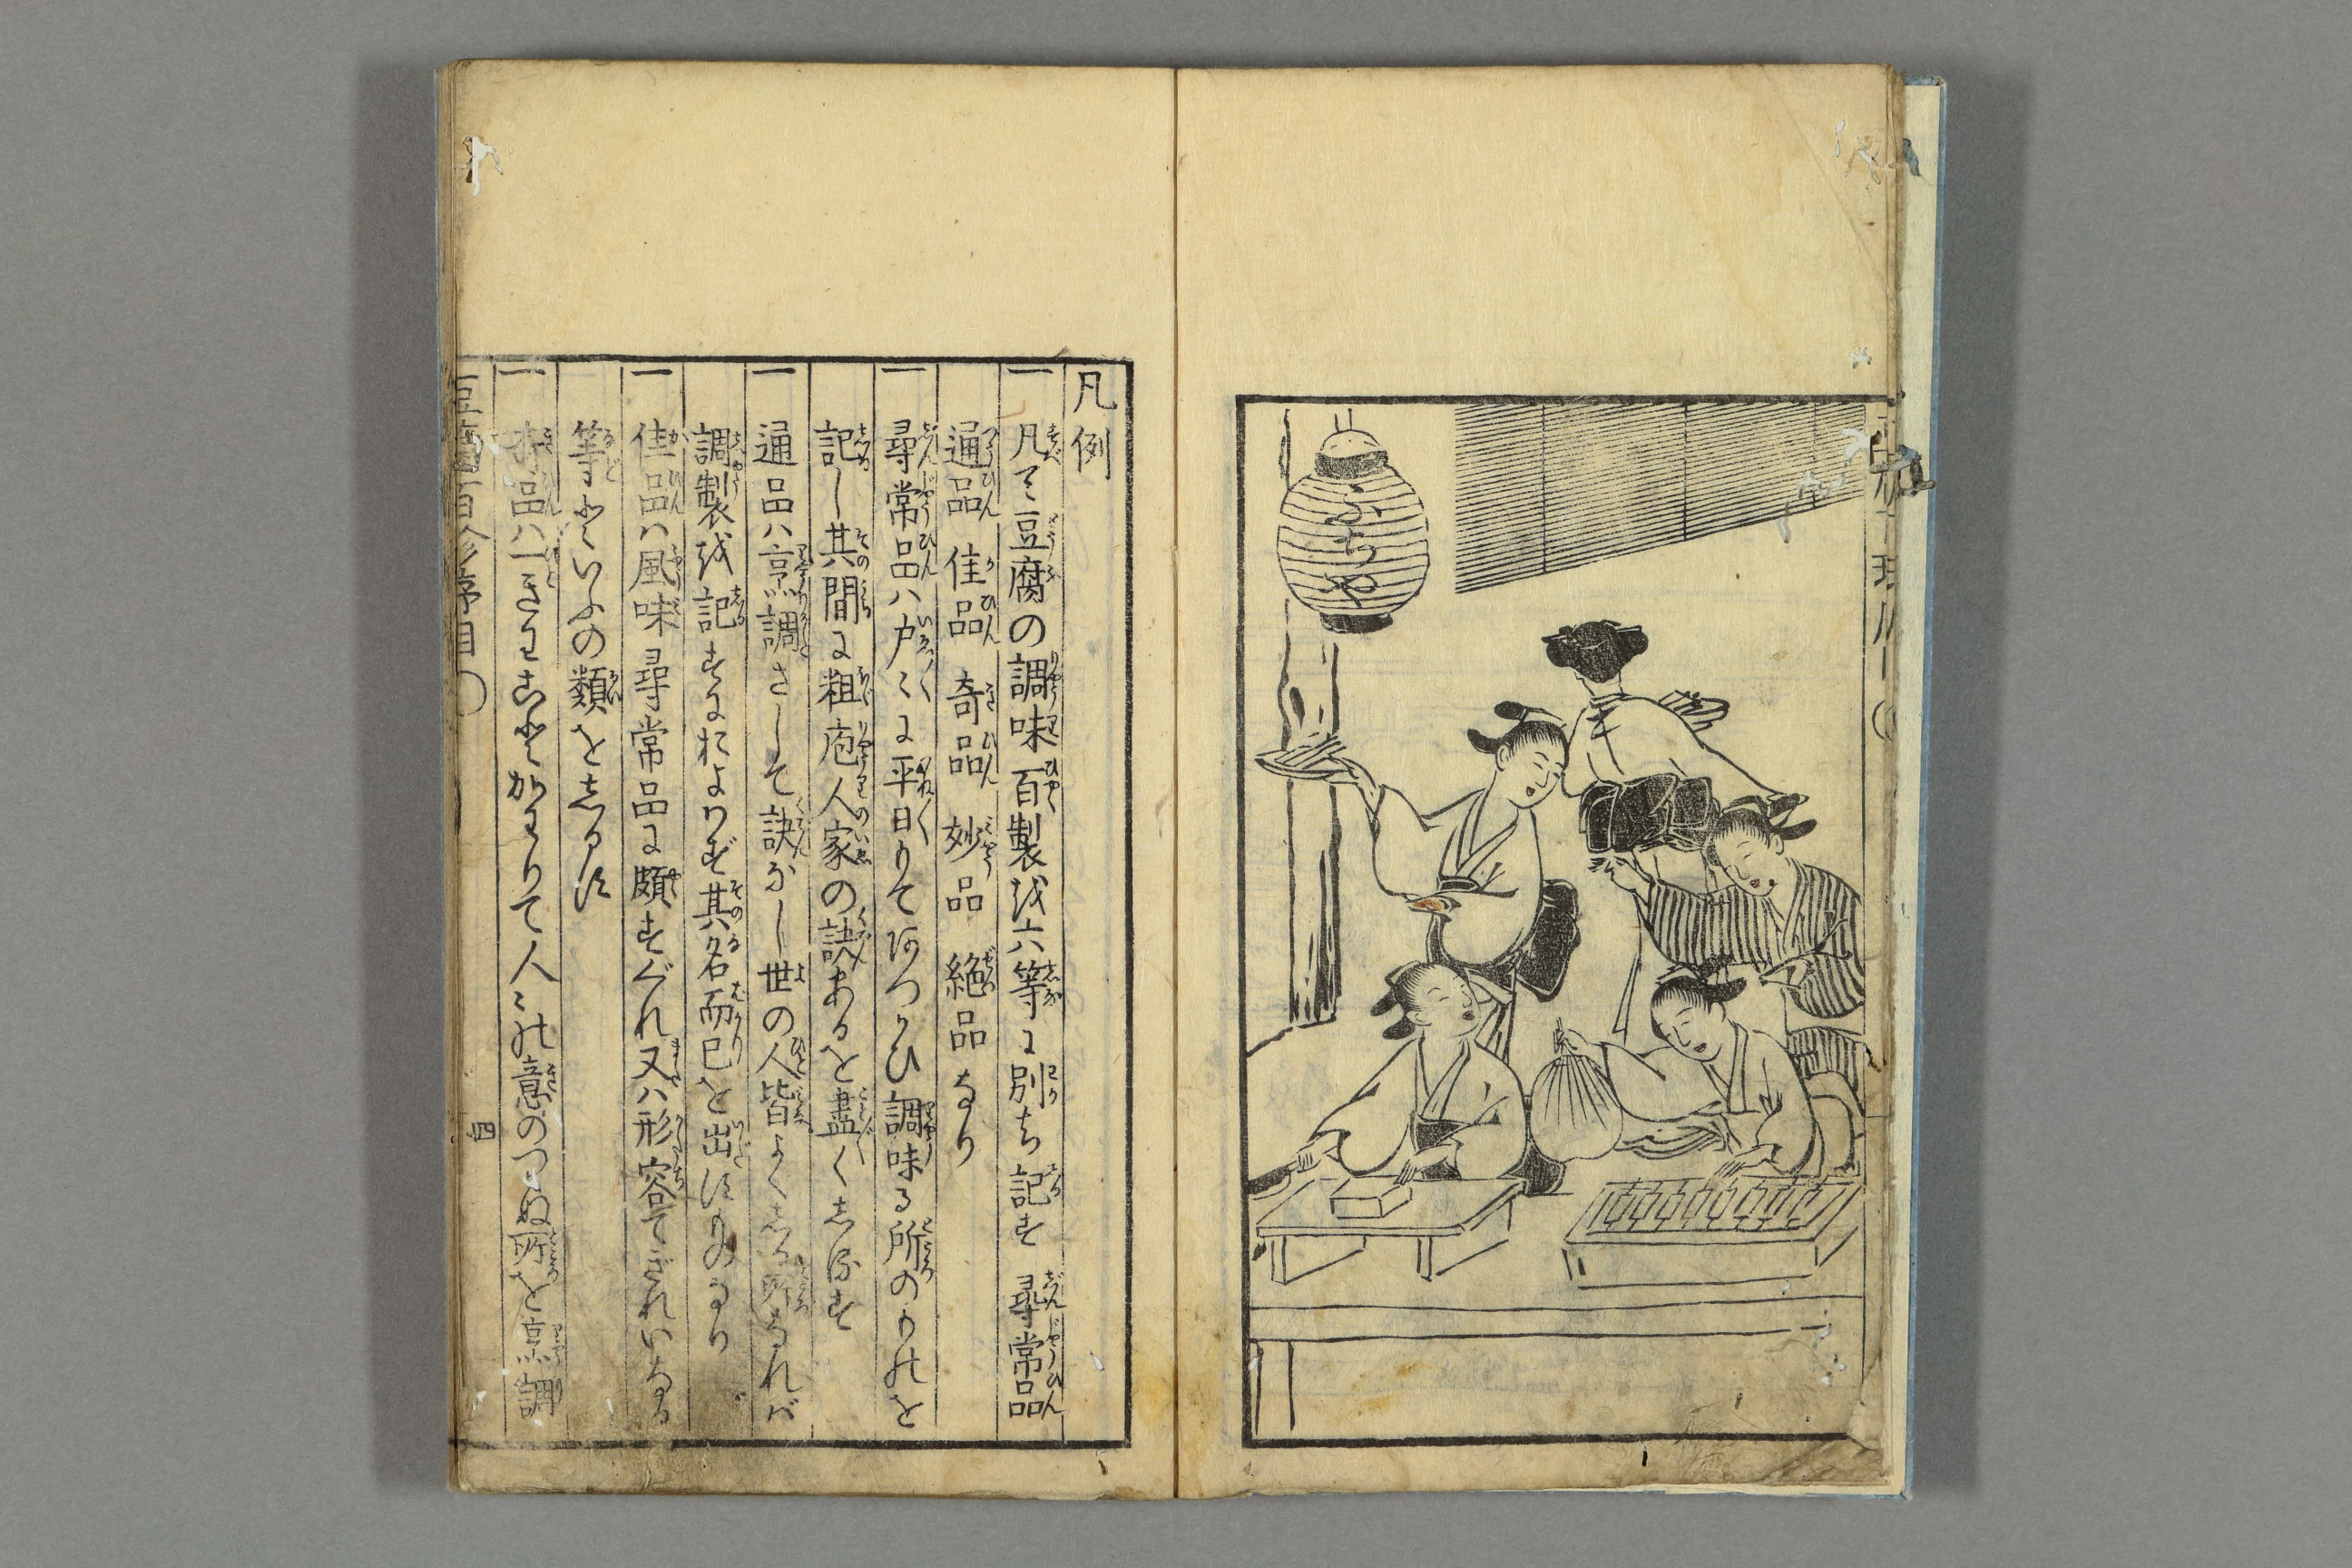 ふちや
凡例
一 凡そ豆腐の調味百製を六等に別ち記す 尋常品
通品 佳品 奇品 妙品 絶品 なり
一 尋常品ハ戸々に平日もてあつかひ調味る所のものを
記し其間に粗庖人家の訣あるを盡くしるす
一 通品ハ烹調さして訣なし世の人皆よくしる所なれバ
調製を記すにおよハず其名而已を出すものなり
一 佳品ハ風味尋常品に頗すぐれ又ハ形容てぎれいなる
等といふの類をしるす
一 奇品ハ一きわことかわりて人々の意のつかぬ所を烹調
豆腐百珍序目
四